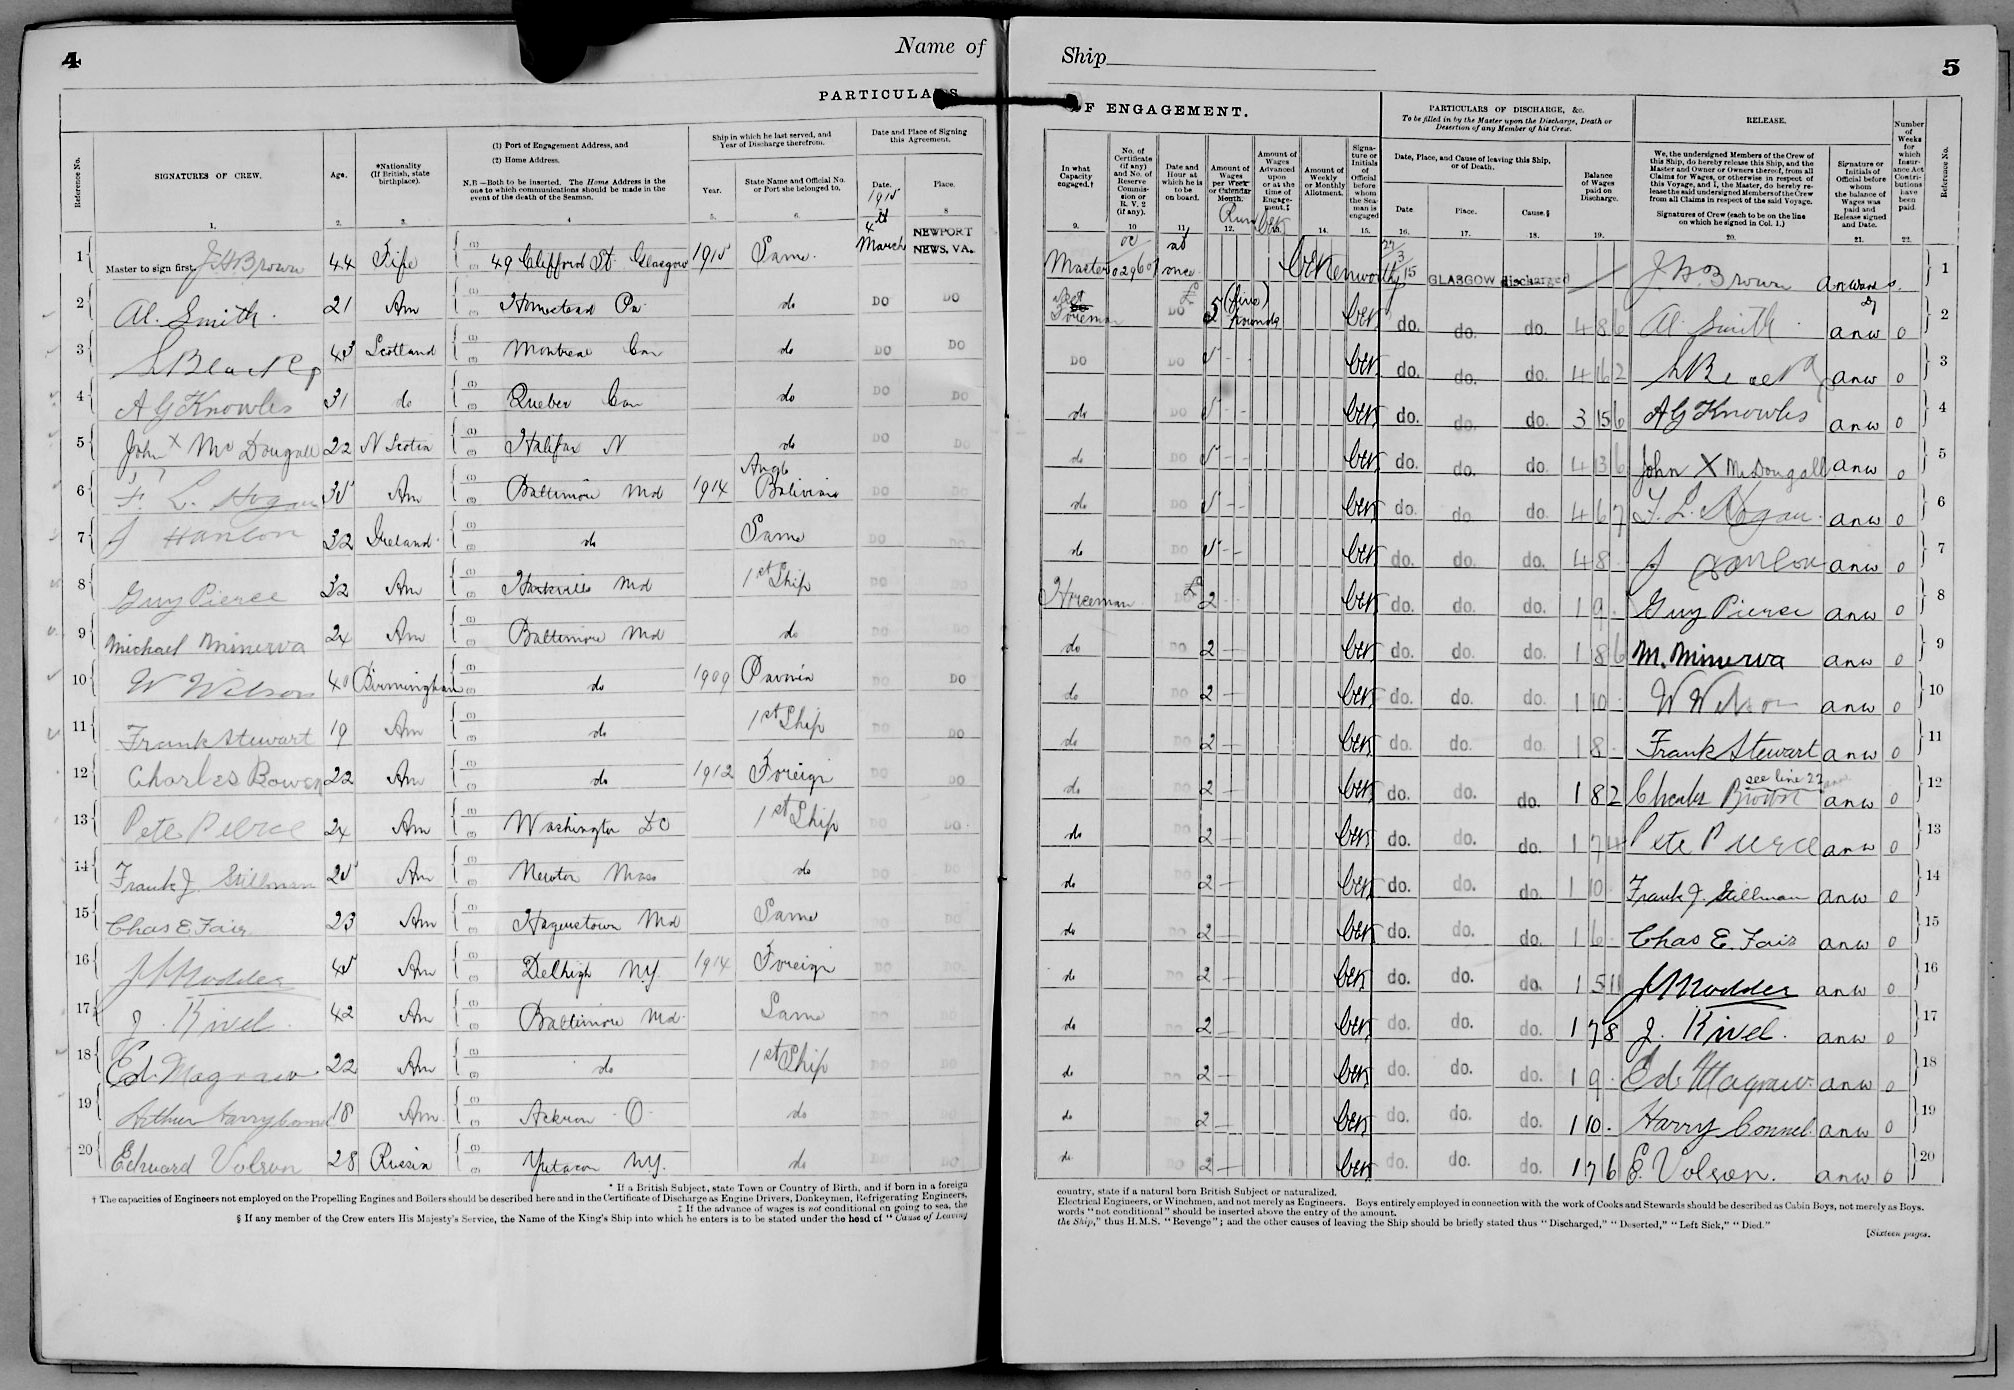 4
Name of
PARTICULARS
Reference No.
SIGNATURES OF CREW.
1.
Age.
2.
*Nationality
(If British, state
birthplace).
3.
(1) Port of Engagement Address, and
(2) Home Address.
N.B.—Both to be inserted. The Home Address is the
one to which communications should be made in the
event of the death of the Seaman.
4
Ship in which he last served, and
Year of Discharge therefrom.
Year.
5.
State Name and Official No.
or Port she belonged to.
6.
Date and Place of Signing
this Agreement.
Date.
1915
Place.
8
1 Master to sign first. J H Brown 44 Fife 49 Clifford St. Glasgow 1915 Same. 4th March NEWPORT NEWS, VA.
2 Al. Smith. 21 Am Homestead Pa do DO DO
3 43 Scotland Montreal Can do DO DO
4 A G Knowles 31 do Quebec Can do DO DO
5 John X McDougall 22 N Scotia Halifax N do DO DO
6 F. L. Hogan 35 Am Baltimore Md 1914 Anglo Bolivian DO DO
7 J Hanlon 32 Ireland do Same DO DO
8 Guy Pierce 32 Am Md 1st Ship DO DO
9 Michael Minerva 24 Am Baltimore Md do DO DO
10 W Wilson 40 Birmingham do 1909 DO DO
11 Frank Stewart 19 Am do 1st Ship DO DO
12 Charles Bowen 22 Am do 1912 Foreign DO DO
13 Pete Pierce 24 Am Washington DC 1st Ship DO DO
14 Frank J. Stillman 25 Am Newton Mass do DO DO
15 Chas E Fair 23 Am Hagerstown Md Same DO DO
16 45 Am Delhigh N.Y. 1914 Foreign DO DO
17 J. Rivel. 42 Am Baltimore Md. Same DO DO
18 Ed. Magraw. 22 Am do 1st Ship DO DO
19 Arthur 18 Am. Ackron O. do DO DO
20 Edward Volson 28 Russia N.Y. do DO DO
* If a British Subject, state Town or Country of Birth, and if born in a foreign
† The capacities of Engineers not employed on the Propelling Engines and Boilers should be described here and in the Certificate of Discharge as Engine Drivers, Donkeymen, Refrigerating Engineers,
‡ If the advance of wages is not conditional on going to sea, the
§ If any member of the Crew enters His Majesty's Service, the Name of the King's Ship into which he enters is to be stated under the head of "Cause of Leaving
Ship
5
OF ENGAGEMENT.
In what
Capacity
engaged.†
9.
No. of
Certificate
(if any)
and No. of
Reserve
Commis-
sion or
R. V. 2
(if any).
10
Date and
Hour at
which he is
to be
on board.
11.
Amount of
Wages
per Week
or Calendar
Month.
Run
12.
Amount of
Wages
Advanced
upon
or at the
time of
Engage-
ment.‡
13.
Amount of
Weekly
or Monthly
Allotment.
14.
Signa-
ture or
Initials
of
Official
before
whom
the Sea-
man is
engaged
15.
PARTICULARS OF DISCHARGE, &c.
To be filled in by the Master upon the Discharge, Death or
Desertion of any Member of his Crew.
Date, Place, and Cause of leaving this Ship,
or of Death.
Date
16.
Place.
17.
Cause.§
18.
Balance
of Wages
paid on
Discharge.
19.
RELEASE.
We, the undersigned Members of the Crew of
this Ship, do hereby release this Ship, and the
Master and Owner or Owners thereof, from all
Claims for Wages, or otherwise in respect of
this Voyage, and I, the Master, do hereby re-
lease the said undersigned Members of the Crew
from all Claims in respect of the said Voyage.
Signatures of Crew (each to be on the line
on which he signed in Col. 1.)
20.
Signature or
Initials of
Official before
whom
the balance of
Wages was
paid and
Release signed
and Date.
21.
Number
of
Weeks
for
which
Insur-
ance Act
Contri-
butions
have
been
paid.
22.
Reference No.
Master 029601 at once. 27/3/15 GLASGOW discharged J H. Brown 1
Foreman DO £ 5 (five) Pounds do. do. do. 4 8 6 Al Smith anw 0 2
DO DO 5 - - do. do. do. 4 16 2 anw 0 3
do DO 5 - - do. do. do. 3 15 6 A G Knowles anw 0 4
do DO 5 - - do. do. do. 4 13 6 John X McDougall anw 0 5
do DO 5 - - do. do. do. 4 6 7 F. L. Hogan. anw 0 6
do DO 5 - - do. do. do. 4 8 J Hanlon anw 0 7
Horseman DO £ 2 - - do. do. do. 1 9 - Guy Pierce anw 0 8
do DO 2 — do. do. do. 1 8 6 M. Minerva anw 0 9
do DO 2 — do. do. do. 1 10 - W Wilson anw 0 10
do DO 2 — do. do. do. 1 8 - Frank Stewart anw 0 11
see line 22
do DO 2 — do. do. do. 1 8 2 Charles Brown anw 0 12
do DO 2 — do. do. do. 1 7 4 Pete Pierce anw 0 13
do DO 2 — do. do. do. 1 10 - Frank J. Stillman anw 0 14
do DO 2 — do. do. do. 1 6 - Chas E. Fair anw 0 15
do DO 2 — do. do. do. 1 5 11 anw 0 16
do DO 2 — do. do. do. 1 7 8 J. Rivel. anw 0 17
do DO 2 — do. do. do. 1 9 - Ed. Magraw. anw 0 18
do DO 2 — do. do. do. 1 10 - Harry Connel. anw 0 19
do DO 2 — do. do. do. 1 7 6 E. Volson. anw 0 20
country, state if a natural born British Subject or naturalized.
Electrical Engineers, or Winchmen, and not merely as Engineers. Boys entirely employed in connection with the work of Cooks and Stewards should be described as Cabin Boys, not merely as Boys.
words "not conditional" should be inserted above the entry of the amount.
the Ship," thus H.M.S. "Revenge"; and the other causes of leaving the Ship should be briefly stated thus "Discharged," "Deserted," "Left Sick," "Died."
[Sixteen pages.